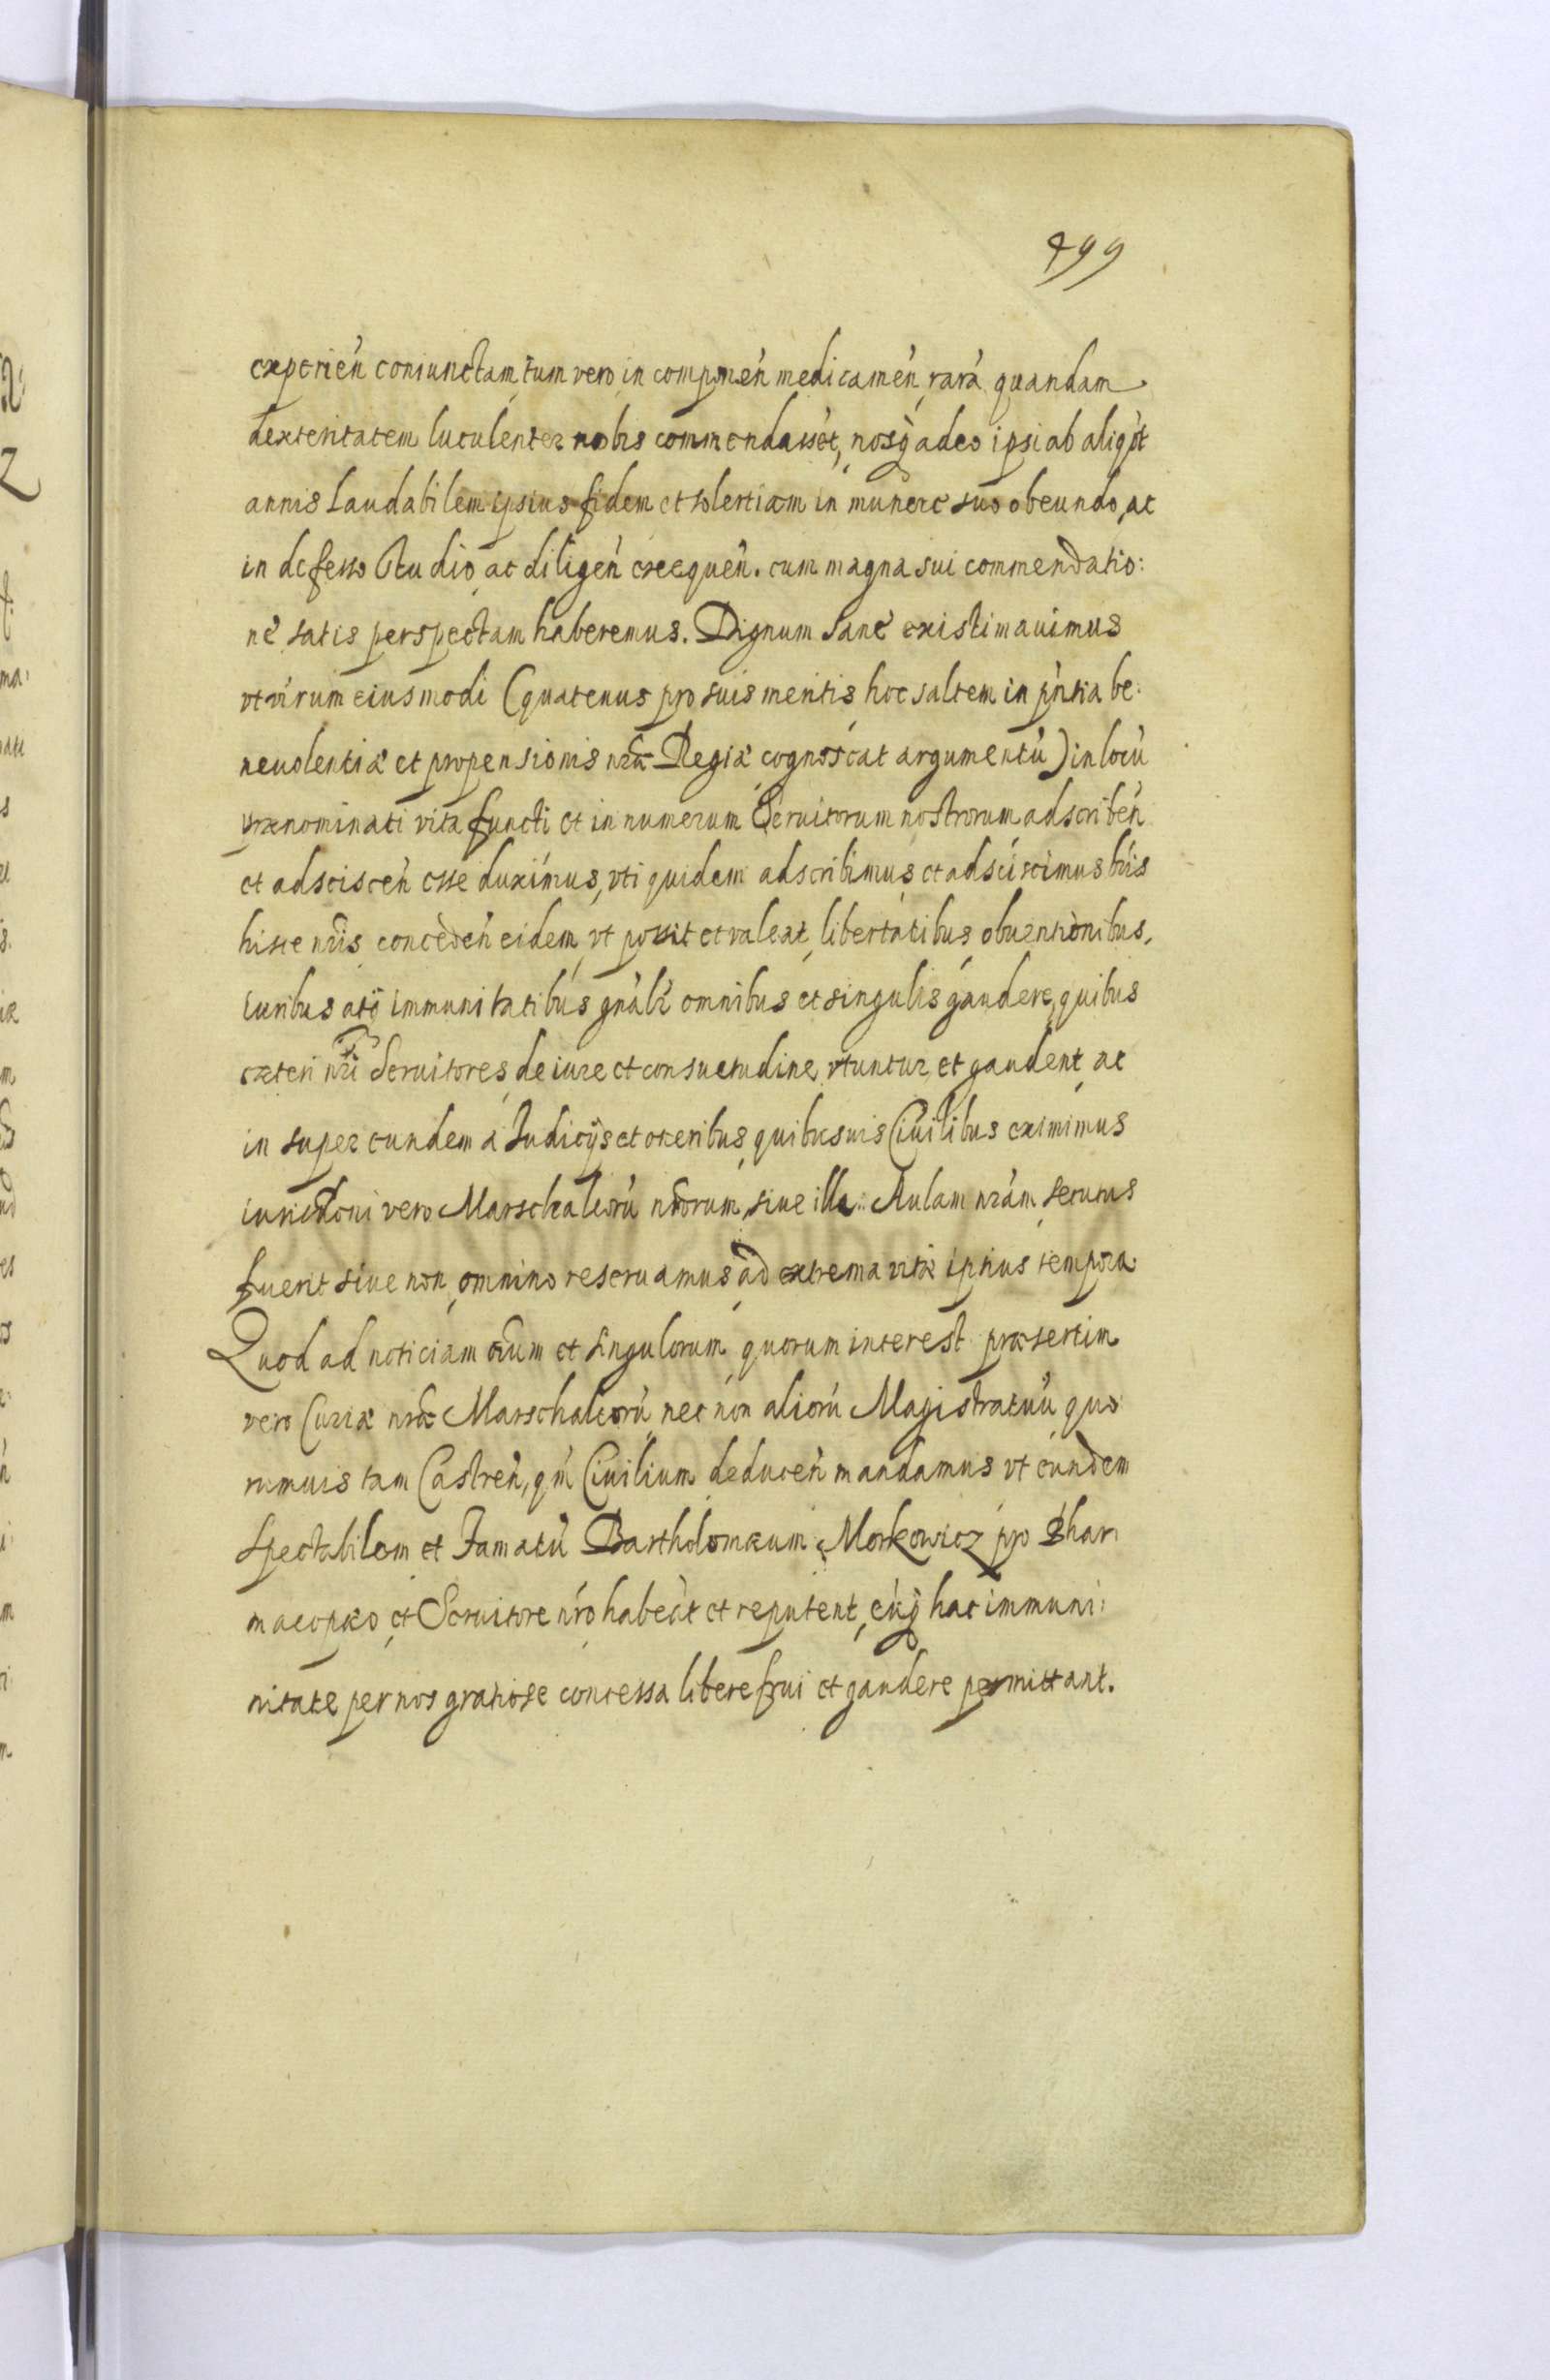 499
experień coniunctam, tum vero in componeń medicameń, rarā quandam
dexteritatem luculenter nobis commendasset, nosq̀ adeo ipsi ab aliqūt
annis laudabilem ipsius fidem et solertiam in munere suo obeundo, ac
in defesso studio, ac diligeń exequeń. cum magna sui commendatio:
ne satis perspectam haberemus. Dignum sane existimauimus
vt virum eiusmodi (quatenus pro suis meritis hoc saltem in pn̄tia be:
neuolentiæ et propensionis nr̄æ Regiæ cognoscat argumentū) in locū
prænominati vita functi et in numerum Seruitorum nostrorum adscribeń
et adscisceń esse duximus, vti quidem adscribimus et adsciscimus lr̄is
hisce nr̄is concedeń eidem, vt possit et valeat, libertatibus, obuentionibus,
iuribus atq̀ immunitatibus gn̄alr̄ omnibus et singulis gaudere, quibus
cæteri nr̄i Seruitores, de iure et consuetudine, vtuntur, et gaudent, ac
in super eundem a Iudicijs et oneribus, quibusuis Ciuilibus eximimus
iurisdictoni vero Marschalcorū nr̄orum, siue ille Aulam nr̄am secutus
fuerit siue non, omnino reseruamus, ad extrema vitæ ipsius tempora
Quod ad noticiam oīum et singulorum, quorum interest præsertim
vero Curiæ nr̄æ Marschalcorū, nec non aliorū Magistratuū quo
rumuis tam Castreń, qm̄ Ciuilium deduceń mandamus vt eundem
Spectabilem et Famatū Bartholomæum Morkowicz pro Phar:
macopæo, et Seruitore nr̄o habeāt et reputent, eūq̀ hac immuni:
nitate per nos gratiose concessa libere frui et gaudere permittant.